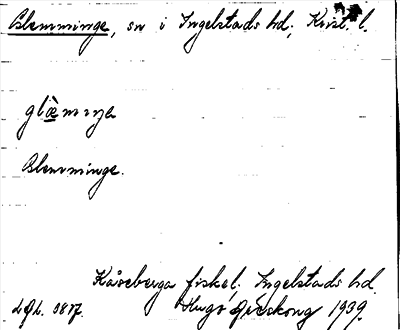 Glemminge, sn i Ingelstads hd, Krist. l.
glæ̀miŋa
Glemminge.
Kåseberga fiskel. Ingelstads hd.
Hugo Areskoug 1939.